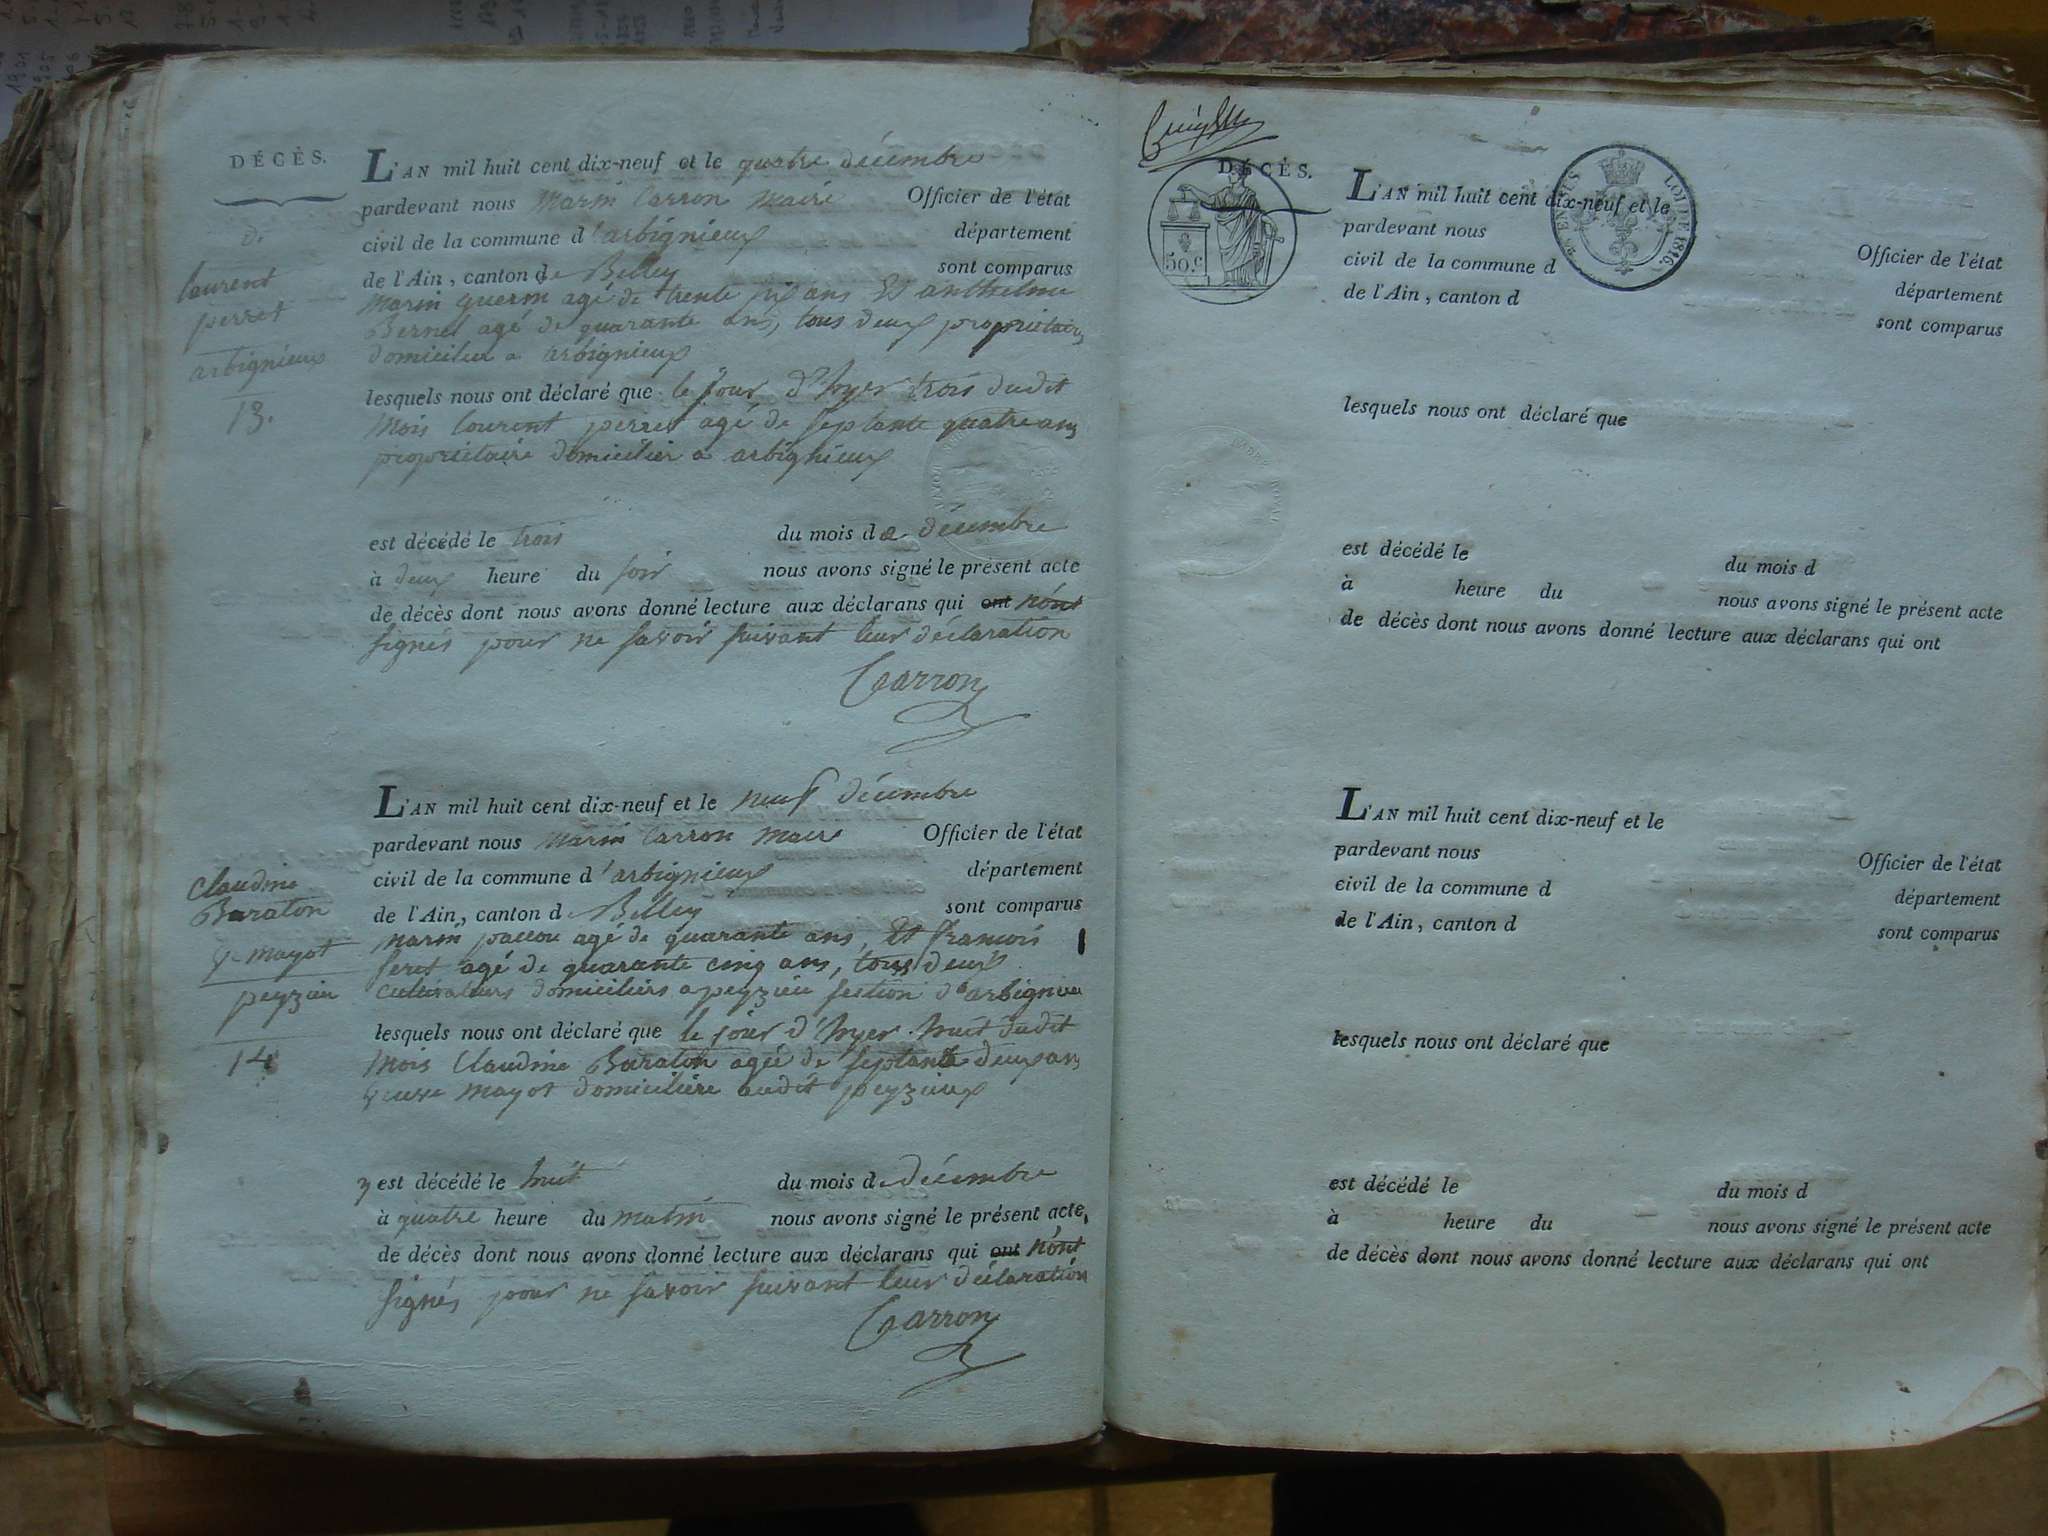 DÉCÈS.
D.
laurent
perret
arbignieux
13.
L'AN mil huit cent dix-neuf et le quatre décembre
pardevant nous Marin Carron Maire Officier de l'état
civil de la commune d'arbignieux département
de l'Ain, canton de Belley sont comparus
Marin guerin agé de trente six ans Et anthelme
Bernet agé de quarante ans, tous deux proprietaires
domicilier a arbignieux
lesquels nous ont déclaré que le jour d'hyer trois dudit
Mois laurent perret agé de septante quatre ans
propriétaire domicilier a arbignieux
est décédé le trois du mois de décembre
à deux heure du soir nous avons signé le présent acte
de décès dont nous avons donné lecture aux déclarans qui ont n'ont
signés pour ne savoir suivant leur déclaration
Carron
Claudine
Baraton
Ve mayot
peyzieu
14
L'AN mil huit cent dix-neuf et le neuf décembre
pardevant nous Marin Carron Maire Officier de l'état
civil de la commune d'arbignieux département
de l'Ain, canton de Belley sont comparus
Marin pallou agé de quarante ans, Et francois
feret agé de quarante cinq ans, tous deux
cultivateurs domiciliers a peyzieu section d'arbignieu
lesquels nous ont déclaré que le jour d'hyer huit dudit
Mois Claudine Baraton agée de septante deux ans
veuve mayot domiciliere audit peyzieux
y est décédé le huit du mois de décembre
à quatre heure du matin nous avons signé le présent acte
de décès dont nous avons donné lecture aux déclarans qui ont n'ont
signés pour ne savoir suivant leur déclaration
Carron
DÉCÈS.
50.c
EN SUS LOI DE 1816.
L'AN mil huit cent dix-neuf et le
pardevant nous Officier de l'état
civil de la commune d département
de l'Ain, canton d sont comparus
lesquels nous ont déclaré que
est décédé le du mois d
à heure du nous avons signé le présent acte
de décès dont nous avons donné lecture aux déclarans qui ont
L'AN mil huit cent dix-neuf et le
pardevant nous Officier de l'état
civil de la commune d département
de l'Ain, canton d sont comparus
lesquels nous ont déclaré que
est décédé le du mois d
à heure du nous avons signé le présent acte
de décès dont nous avons donné lecture aux déclarans qui ont